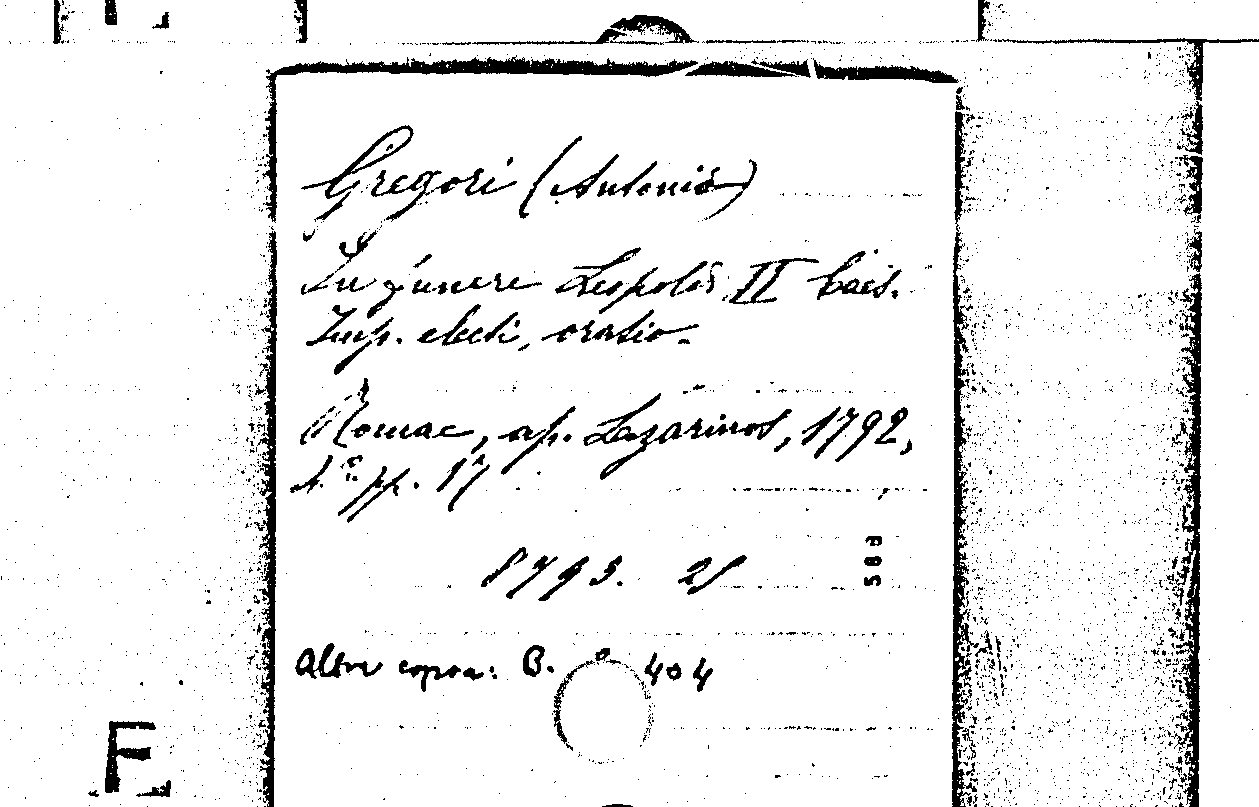 Gregori (Antonio)
In funere Leopoldi II Caes.
Imp. electi, oratio.
Romae, ap. Lazarinos, 1792,
4.° pp. 17
8793. 25
583
Altra copia: B. 404
F